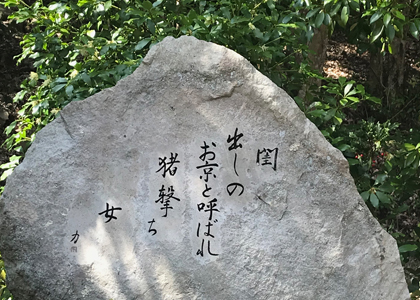 閨
出しの
お京と呼ばれ
猪撃ち
女